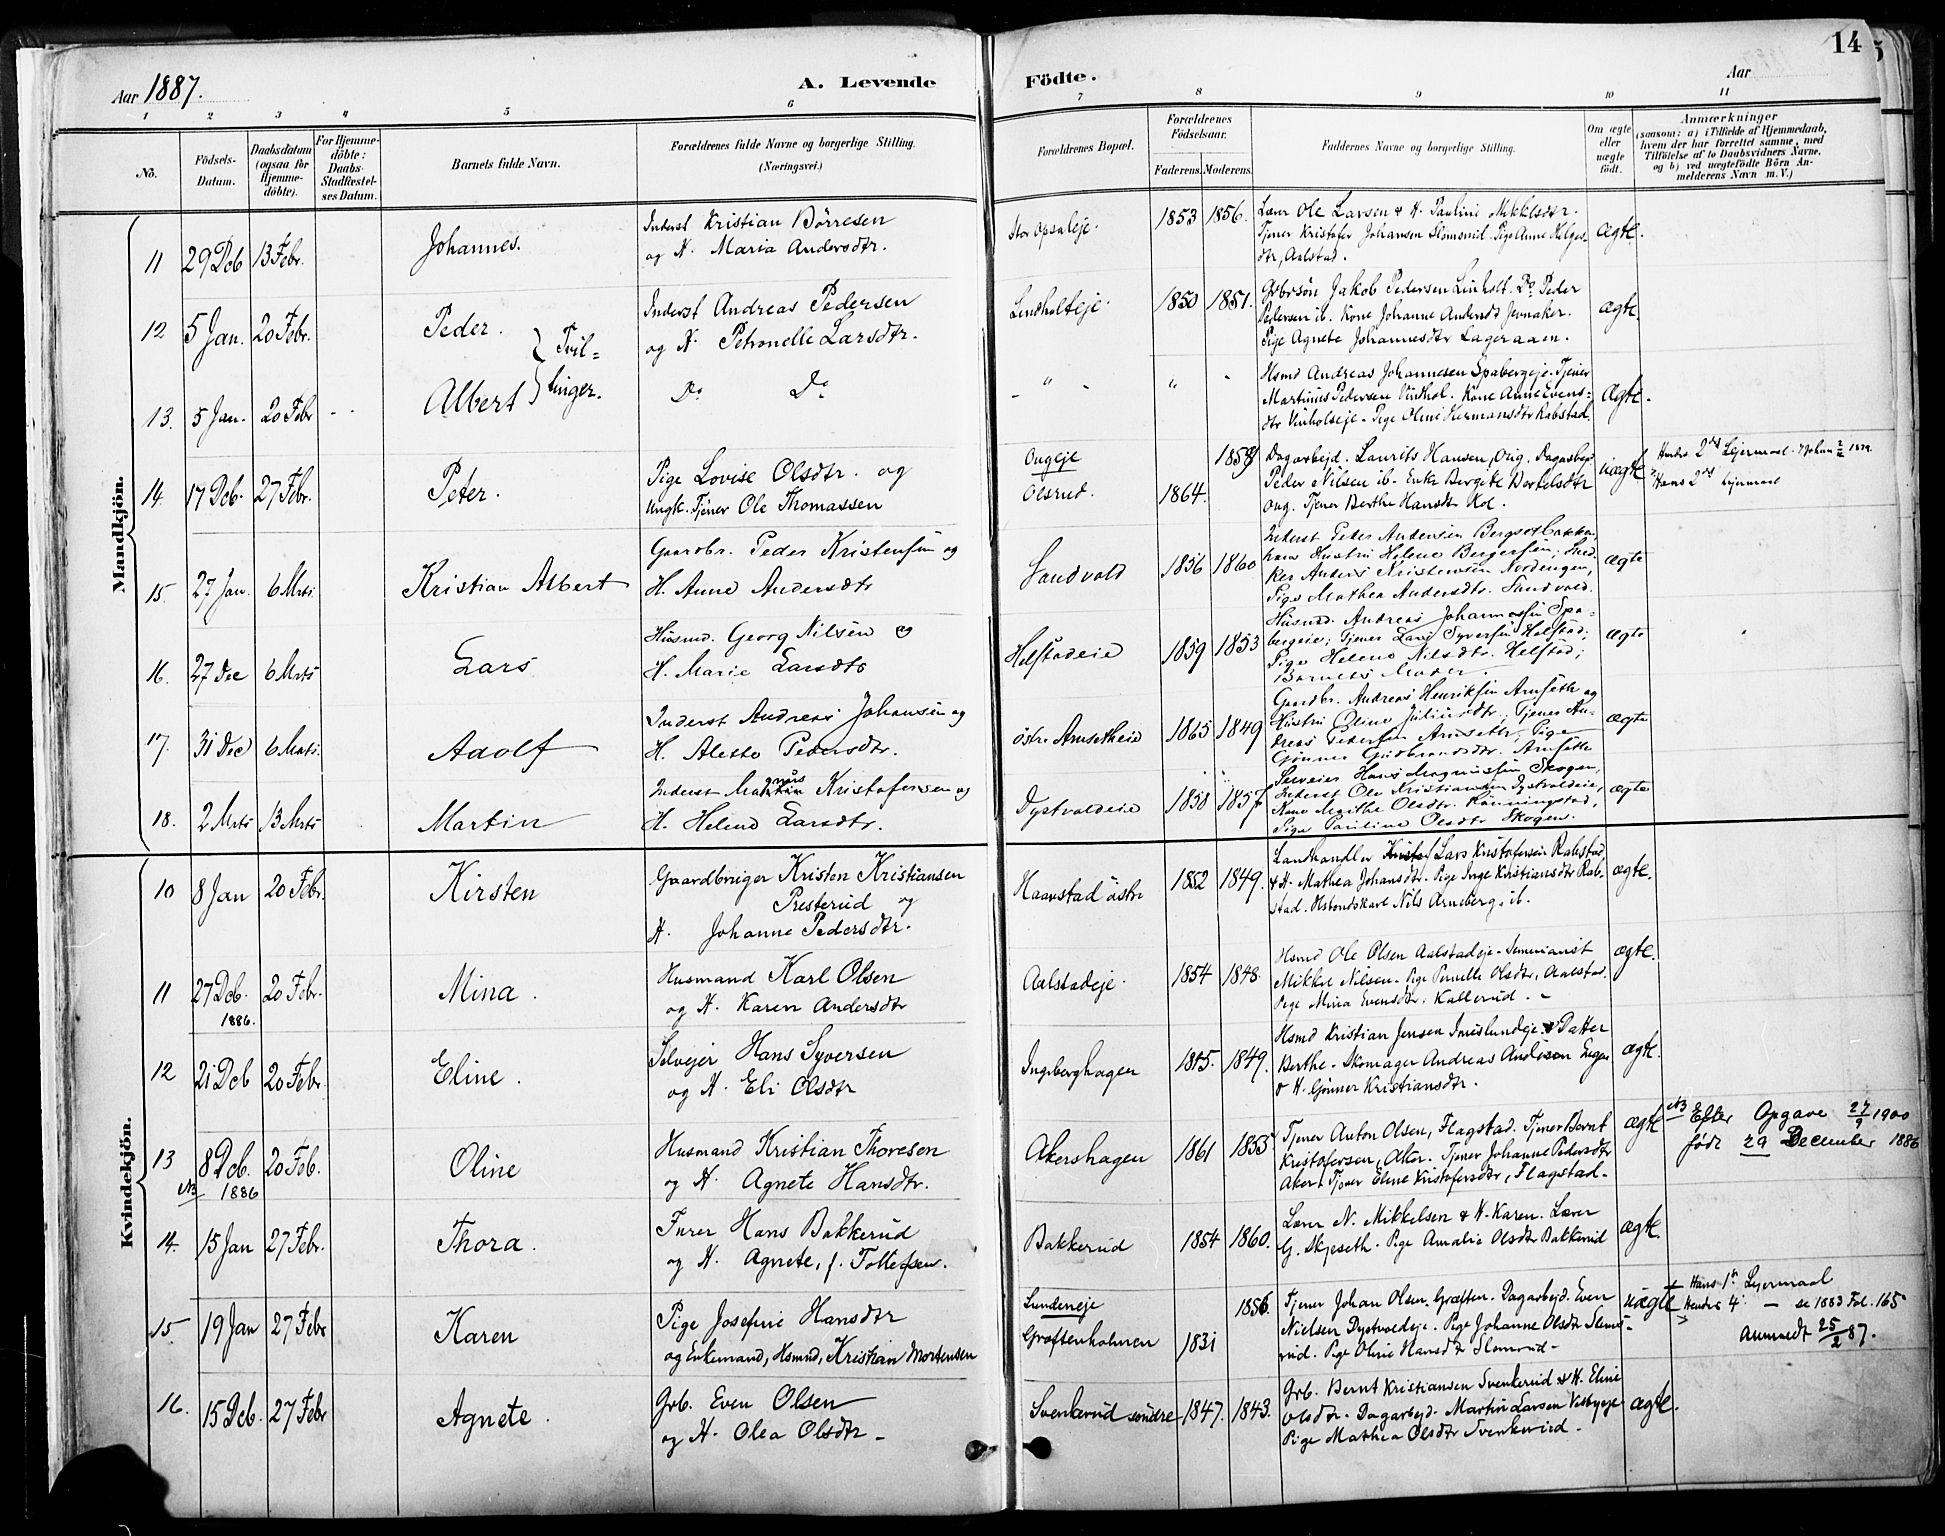 Aar 1887.
A. Levende Födte.
Aar
14
1 2 3 4 5 6 7 8 9 10 11
No.
Födsels-Datum.
Daabsdatum (ogsaa för Hjemme-döbte).
For Hjemme-döbte: Daabs-Stadfæstel-ses Datum.
Barnets fulde Navn.
Forældrenes fulde Navne og borgerlige Stilling.
(Næringsvei.)
Forældrenes Bopæl.
Forældrenes Födselsaar.
Faderens. Moderens.
Faddernes Navne og borgerlige Stilling.
Om ægte eller uægte födt.
Anmærkninger
(saasom: a) i Tilfælde af Hjemmedaab,
hvem der har forrettet samme, med
Tilföielse af to Daabsvidners Navne.
og b) ved uægtefödte Börn An-
melderens Navn m. V.)
Mandkjön.
11 29 Dcb 13 Febr. Johannes.
Inderst Kristian Börresen
og H. Maria Andersdtr.
Stor Opsaleje. 1853 1856.
Lærer Ole Larsen & H. Pauline Mikkelsdtr.
Tjener Kristofer Johansen Slomsrud. Pige Anne Helges-
dtr, Aalstad.
ægte.
12 5 Jan. 20 Febr. Peder. } Tvil-
Inderst Andreas Pedersen
og H. Petronelle Larsdtr.
Lindholteje. 1850 1851.
Gbrsön Jakob Pedersen Linholt. Do Peder
Pedersen ib. Kone Johanne Andersdt Jevnaker.
Pige Agnete Johannesdtr Lageraaen.
ægte.
13. 5 Jan. 20 Febr Albert } linger.
Do Do
" " "
Hsmd Andreas Johannesen Spabergeje. Tjener
Martinus Pedersen Vindhol. Kone Anne Evens-
dtr Vinholseje. Pige Oline Hermansdtr Rabstad.
ægte.
14. 17 Dcb. 27 Febr. Peter.
Pige Lovise Olsdtr. og
Ungk. Tjener Ole Thomassen
Ongeje
Olsrud.
1864. 1858
Dagarbejd. Laurits Hansen, Ong. Dagarbejd
Peder Nilsen ib. Enke Bergite Bertelsdtr
Ong. Tjener Berthe Hansdtr Kol.
uægte
Hendes 2det Lejermaal.
Hans 2det Lejermaal
15. 27 Jan. 6 Mrts. Kristian Albert
Gaardbr. Peder Kristensen og
H. Anne Andersdtr
Sandvold 1856 1860
Inderst Peder Andersen Bergsetbakken,
hans Hustru Helene Bergersen; Snd-
ker Anders Kristensen Nordengen,
Pige Mathea Andersdtr. Sandvold.
ægte
16. 27 Dec 6 Mrts Lars
Husmd. Georg Nilsen og
H. Marie Larsdtr
Helstadeie 1859 1853
Husmd. Andreas Johannesen Spa-
bergeie; Tjener Lars Syversen Helstad;
Pige Helene Nilsdtr. Helstad;
Barnets Moder.
ægte
17. 31 Dec 6 Mrts. Adolf
Inderst Andreas Johansen og
H. Alette Pedersdtr.
östre Arnsetheie 1865 1849
Gaardbr. Andreas Henriksen Arnseth og
Hustru Oline Juliusdtr; Tjener An-
dreas Pedersen Arnseth; Pige
Gunner Gudbrandsdtr. Arnseth
ægte
18. 2 Mrts 13 Mrts Martin
Inderst Kristofersen og
H. Helene Larsdtr.
Dystvoldeie 1850 1857
Selveier Hans Magnussen Skogen,
Inderst Ole Kristiansen Dystvoldeie,
Kone Marthe Olsdtr. Rönningstad,
Pige Pauline Olsdtr Skogen.
ægte
Kvindekjön.
10 8 Jan 20 Febr. Kirsten
Gaardbruger Kristen Kristiansen
Presterud og
H. Johanne Pedersdtr.
Haavstad östre 1852 1849.
Landhandler Lars Kristofersen Rabstad
& H. Mathea Johansdtr. Pige Inge Kristiansdtr Rab-
stad. Husbondskarl Nils Arneberg, ib.
ægte.
11 27 Dcb. 1886. 20 Febr. Mina.
Husmand Karl Olsen
og H. Karen Andersdtr
Aalstadeje. 1854 1848.
Hsmd Ole Olsen Aalstadeje. Seminarist
Mikkel Nilsen. Pige Pernille Olsdtr, Aalstad.
Pige Mina Evensdtr, Kallerud.
ægte.
12 21 Dcb 20 Febr. Eline.
Selvejer Hans Syversen
og H. Eli Olsdtr
Ingeberghagen 1845. 1849.
Hsmd Kristian Jensen Imislundeje & Datter
Berthe. Skomager Andreas Andersen Engen
& H. Gönner Kristiansdtr.
ægte.
13 8 Dcb. NB 1886 20 Feb. Oline
Husmand Kristian Thoresen
og H. Agnete Hansdtr.
Akershagen 1861 1855
Tjener Anton Olsen, Flagstad. Tjener Bernt
Kristofersen, Aker. Tjener Johanne Pedersdtr
Aker. Tjener Eline Kristofersdtr, Flagstad.
ægte
NB Efter Opgave 27/9 1900
född 29 December 1886
14. 15 Jan 27 Febr. Thora.
Furer Hans Bakkerud
og H. Agnete, f. Tollefsen.
Bakkerud 1854 1860.
Lærer N. Mikkelsen & H. Karen. Lærer
G. Skjeseth. Pige Amalie Olsdtr Bakkerud
ægte.
15. 19 Jan 27 Febr Karen
Pige Josefine Hansdtr
og Enkemand, Hsmnd, Kristian Mortensen
Lundeneje
Græftenholmen
1831 1856.
Tjener Johan Olsen Græften. Dagarbejd. Even
Nielsen Dystvoldeje. Pige Johanne Olsdtr Slems-
rud. Pige Oline Hansdtr Slomsrud.
uægte
Hans 1st Lejermaal
Hendes 4. — se 1883 Fol. 165
Anmeldt 25/2 87.
16. 15 Dcb. 27 Febr Agnete.
Grb. Even Olsen
og H. Olea Olsdtr.
Svenkerud söndre 1847. 1843.
Grb. Bernt Kristiansen Svenkerud & H. Eline
Olsdtr. Dagarbejd. Martin Larsen Visbyeje
Pige Mathea Olsdtr Svenkerud.
ægte.